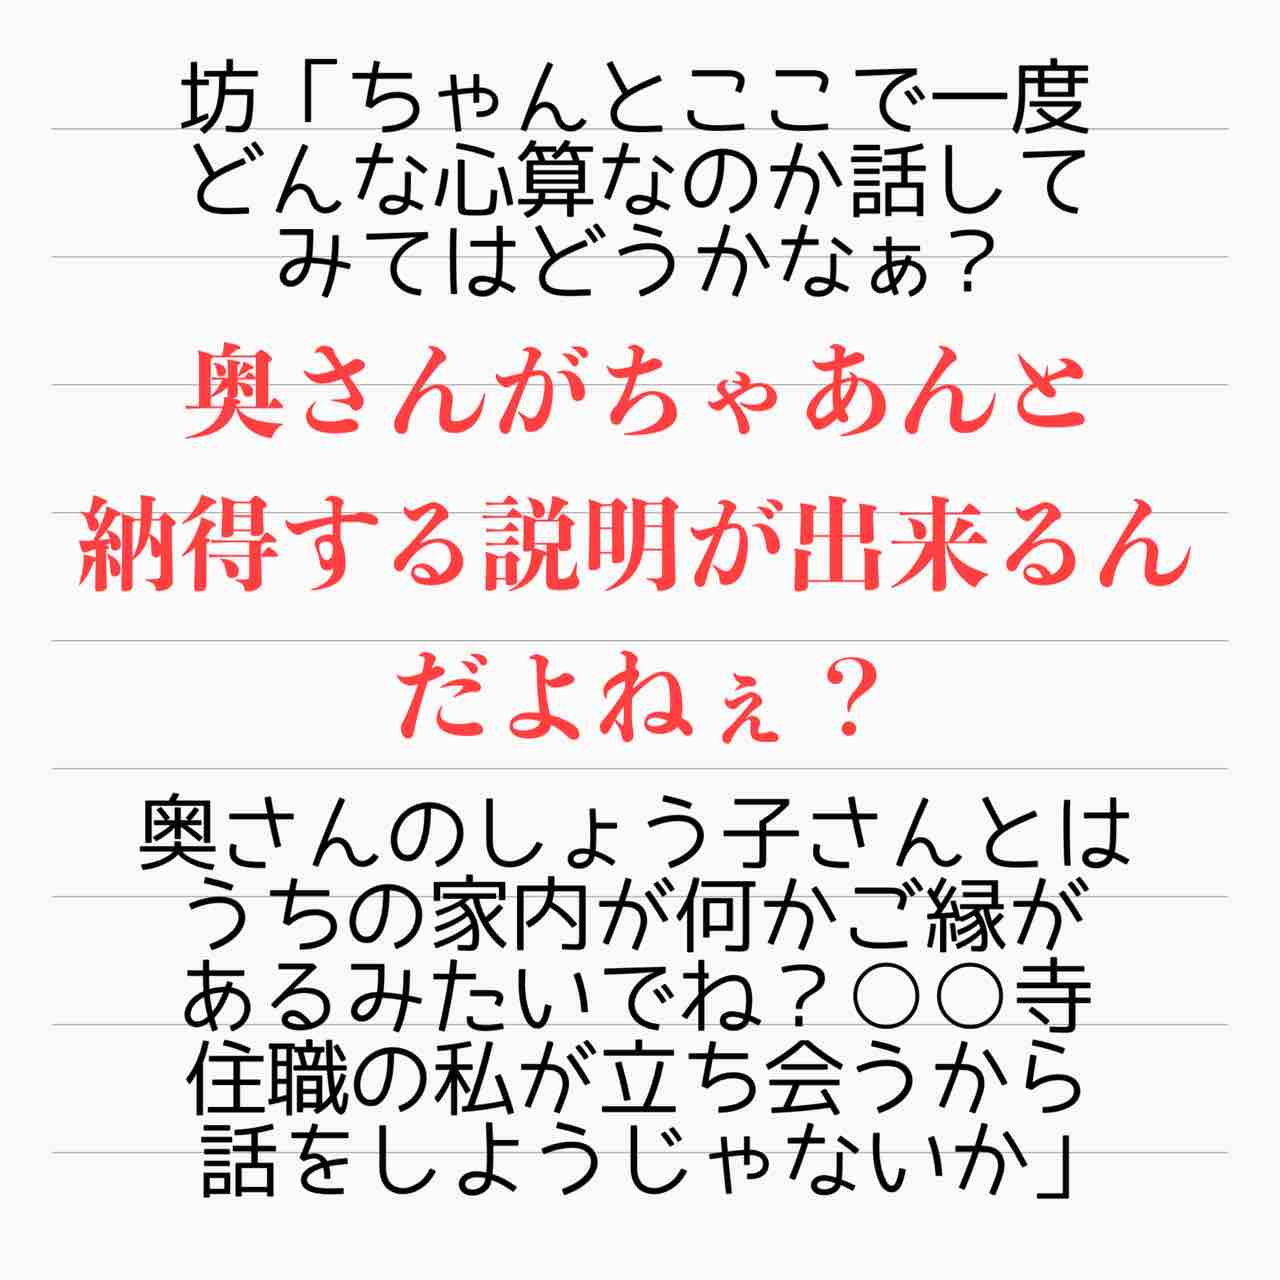 坊「ちゃんとここで一度
どんな心算なのか話して
みてはどうかなぁ?
奥さんがちゃあんと
納得する説明が出来るん
だよねぇ？
奥さんのしょう子さんとは
うちの家内が何かご縁が
あるみたいでね?○○寺
住職の私が立ち会うから
話をしようじゃないか」